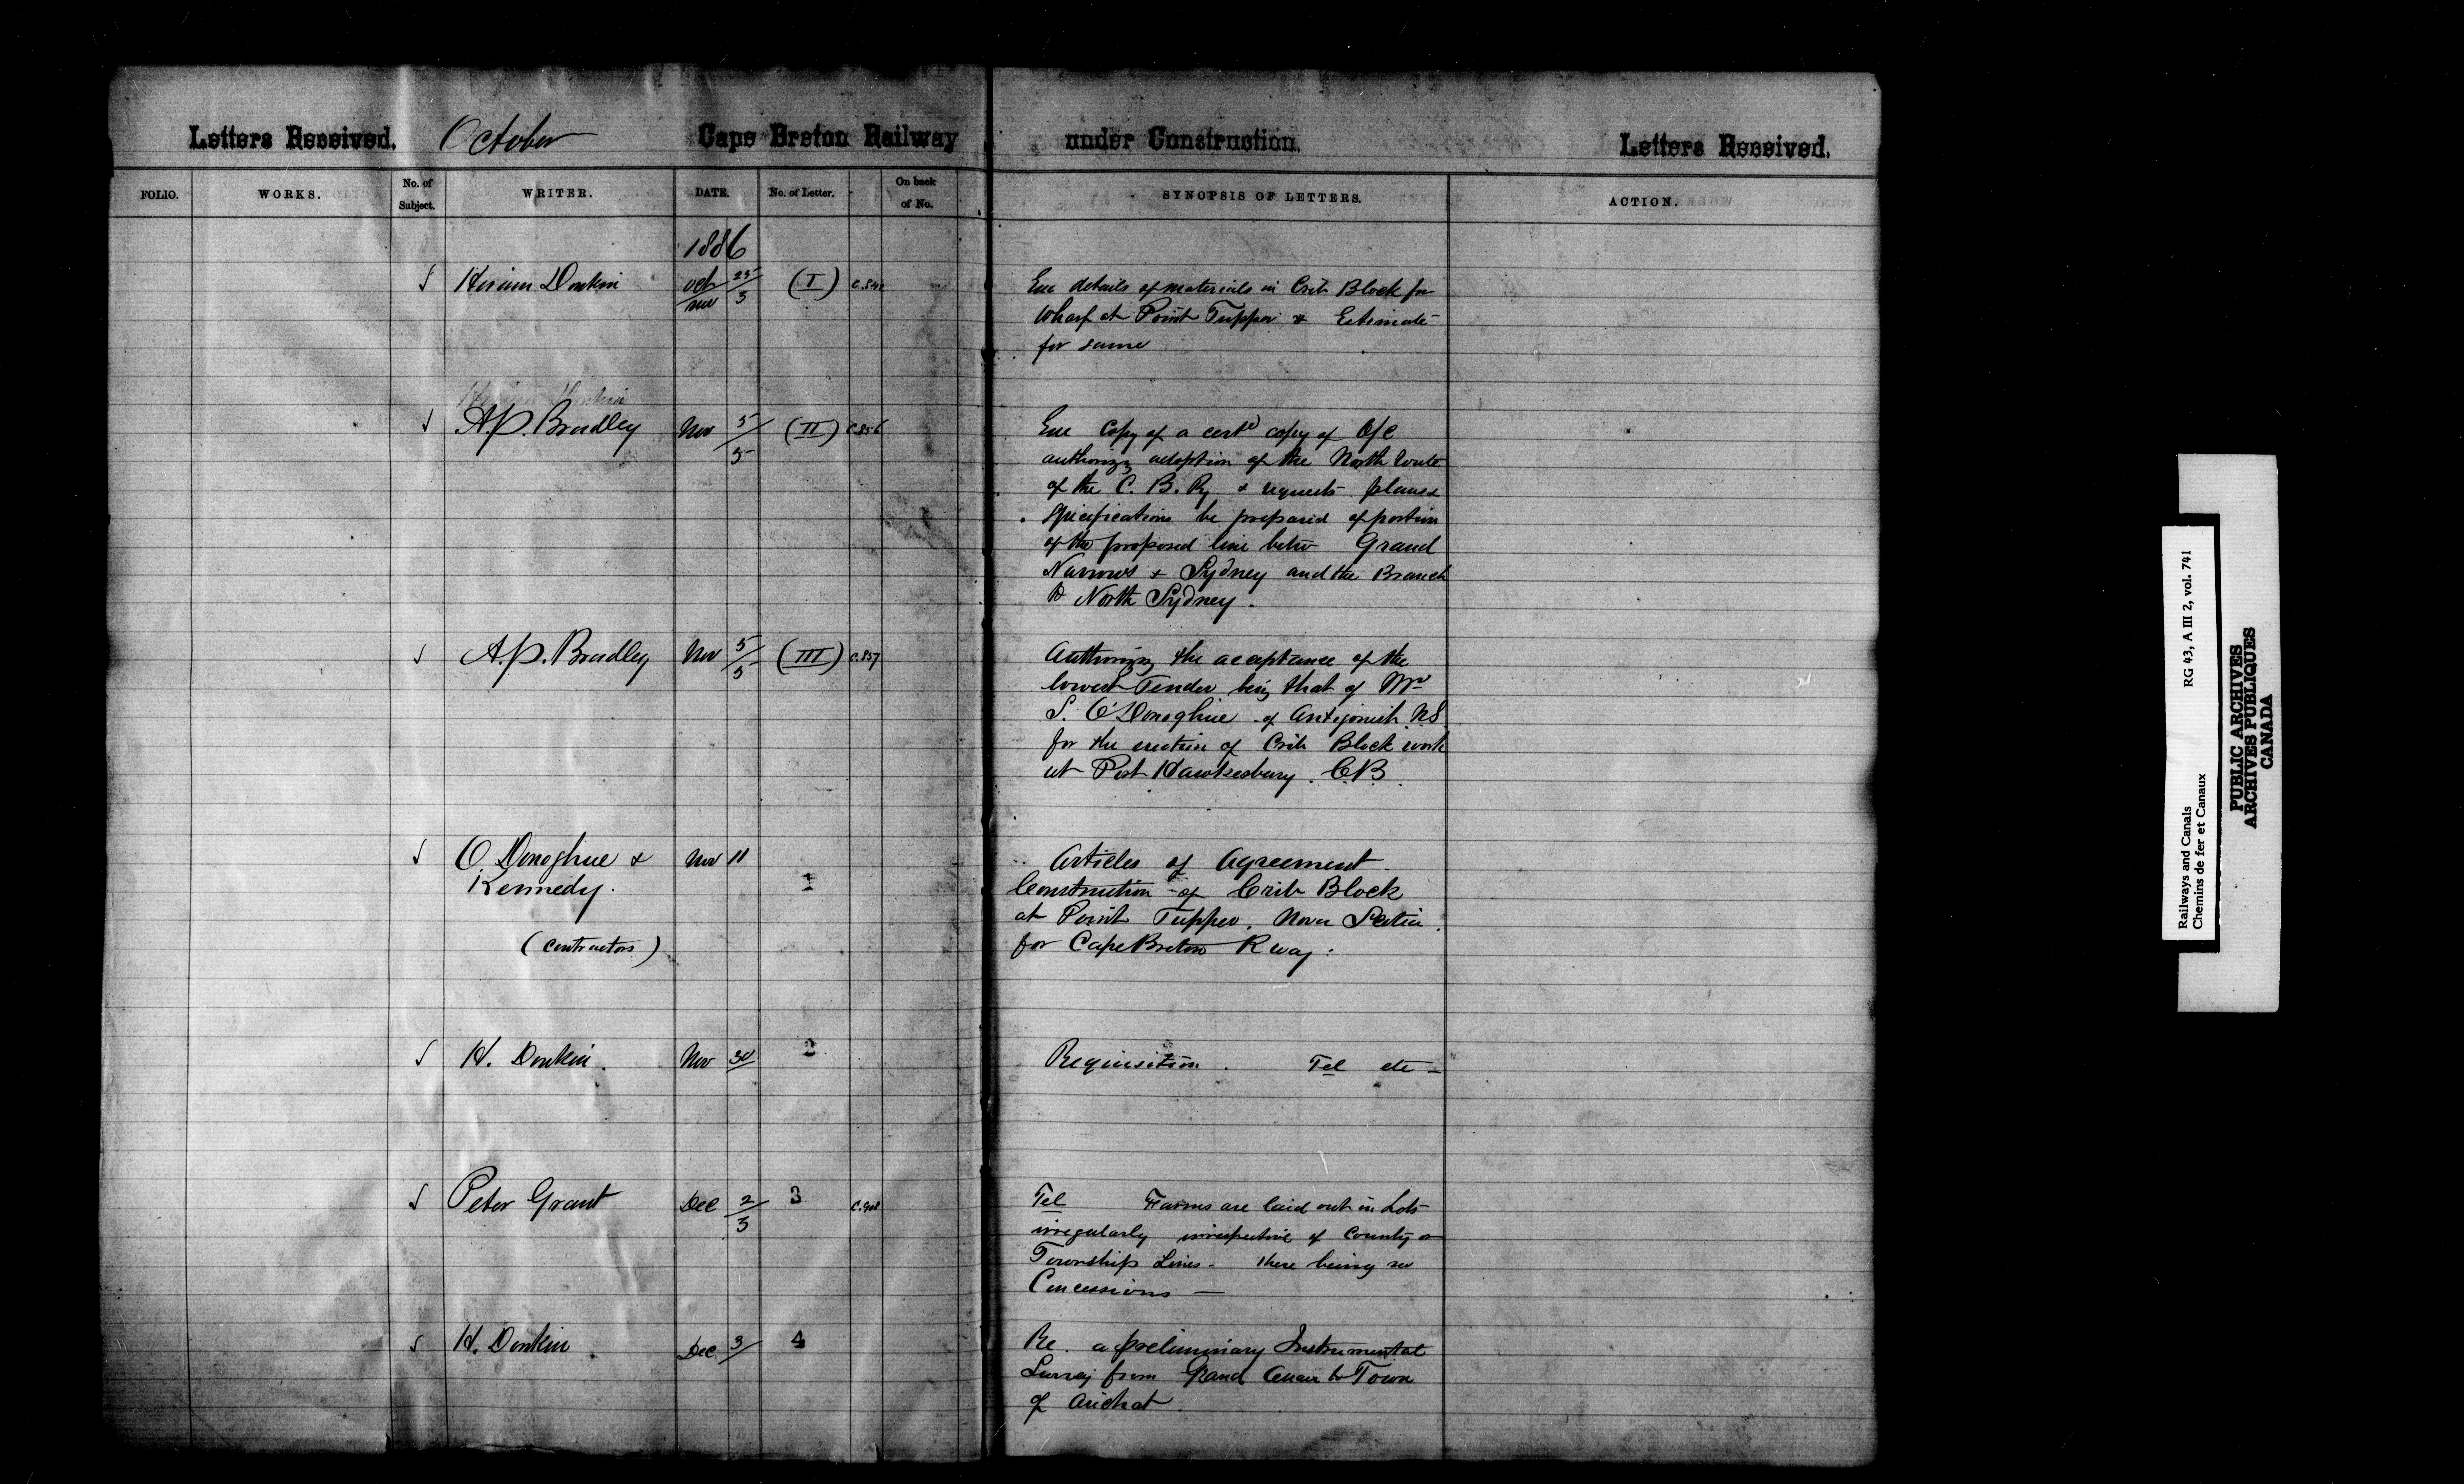 Letters Received. October Cape Breton Railway under Construction. Letters Received.
FOLIO. WORKS. No. of Subject. WRITER. DATE. No. of Letter. On back of No. SYNOPSIS OF LETTERS. ACTION.
1886
Hiram Donkin Oct 25/ Nov 3 (I) Enc details of materials in Crib Block for
Wharf at Point Tupper & Estimate
for same
Hiram Donkin
A.P. Bradley Nov 5/5 (II) C.856 Enc Copy of a certd copy of O/C
authorizg adoption of the North route
of the C. B. Ry & requests plans &
specifications be prepared of portion
of the proposed line betw Grand
Narrows & Sydney and the Branch
to North Sydney.
A.P. Bradley Nov 5/5 (III) C.857 Authorizg the acceptance of the
lowest Tender being that of Mr
S. O'Donoghue of Antigonish N.S.
for the erection of Crib Block work
at Port Hawkesbury. C.B.
O'Donoghue & Nov 11 1 Articles of Agreement
Kennedy. Construction of Crib Block
at Point Tupper. Nova Scotia.
(Contractors) for Cape Breton Rway.
H. Donkin. Nov 30/ 2 Requisition. Tel etc -
Peter Grant Dec 2/3 3 C.908 Tel Farms are laid out in Lots
irregularly irrespective of County or
Township Lines - there being no
Concessions —
H. Donkin. Dec. 3/ 4 Re. a preliminary Instrumental
Survey from Grand Anse to Town
of Arichat.
Railways and Canals RG 43, A III 2, vol. 741
Chemins de fer et Canaux
PUBLIC ARCHIVES
ARCHIVES PUBLIQUES
CANADA